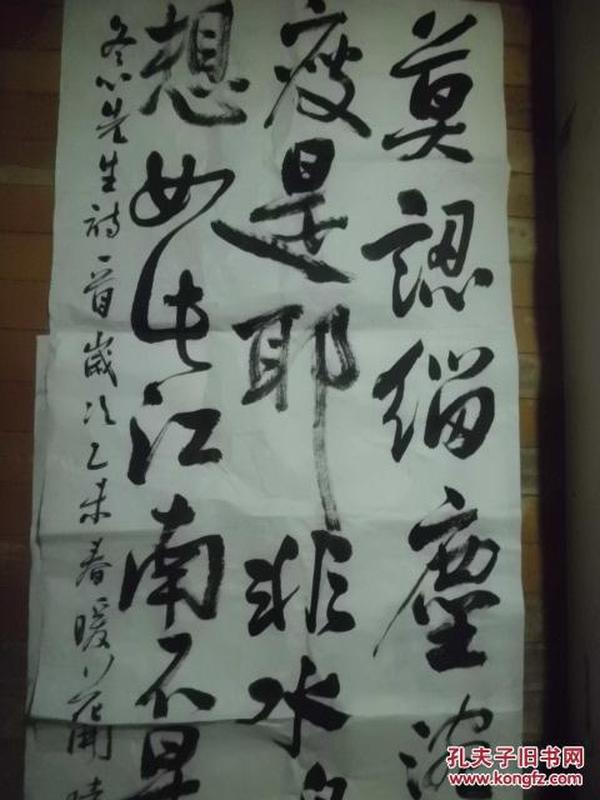 莫認緇塵
瘦是耶非水
想 江南不
冬心先生詩一首歲次乙未春暖花開
孔夫子旧书网
www.kongfz.com